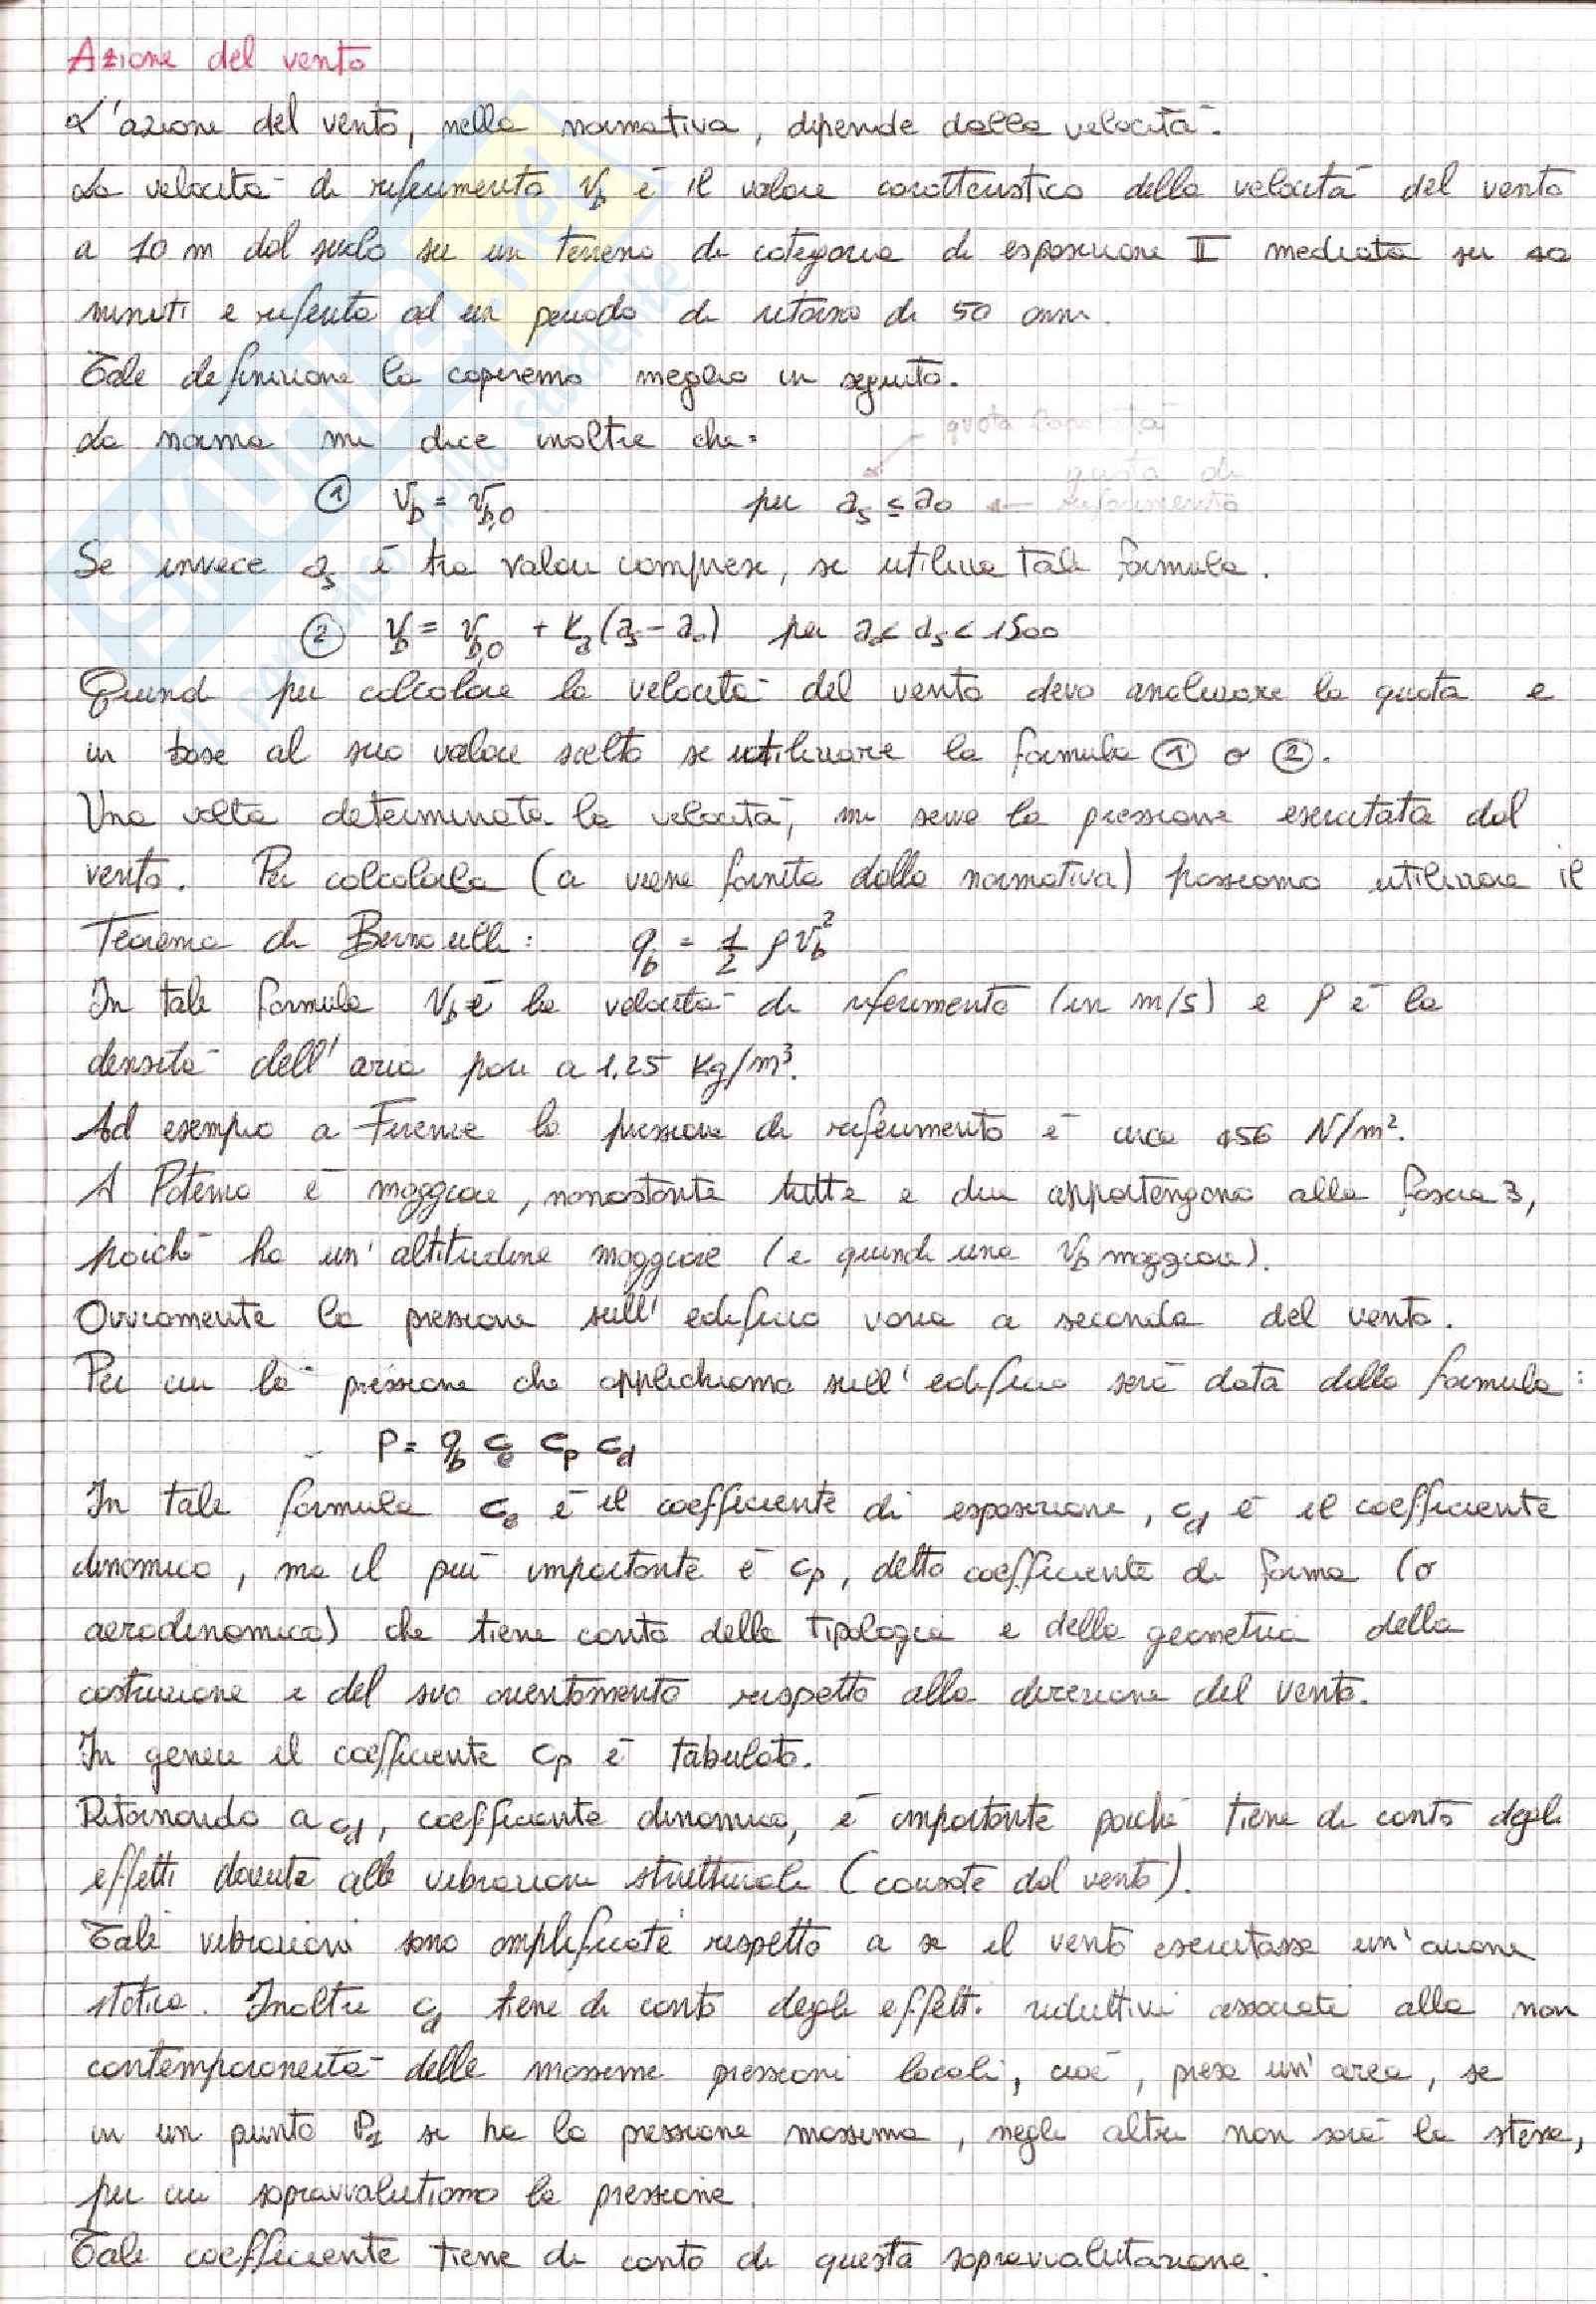 Azione del vento
L'azione del vento, nella normativa, dipende dalla velocità.
La velocità di riferimento v_b è il valore caratteristico della velocità del vento
a 10 m dal suolo su un terreno di categoria di esposizione II mediata su 10
minuti e riferita ad un periodo di ritorno di 50 anni.
Tale definizione la capiremo meglio in seguito.
La norma mi dice inoltre che:
quota
quota di
① v_b = v_b,0 per a_s ≤ a_0 ← riferimento
Se invece a_s è tra valori compresi, si utilizza tale formula.
② v_b = v_b,0 + k_a (a_s - a_0) per a_0 < a_s < 1500
Quind per calcolare la velocità del vento devo analizzare la quota e
in base al suo valore scelto se utilizzare la formula ① o ②.
Una volta determinata la velocità, mi serve la pressione esercitata dal
vento. Per calcolarla (ci viene fornita dalla normativa) possiamo utilizzare il
Teorema di Bernoulli: q_b = 1/2 ρ v_b²
In tale formula v_b è la velocità di riferimento (in m/s) e ρ è la
densità dell'aria pari a 1.25 kg/m³.
Ad esempio a Firenze la pressione di riferimento è circa 456 N/m².
A Potenza è maggiore, nonostante tutte e due appartengono alla fascia 3,
poiché ha un'altitudine maggiore (e quindi una v_b maggiore).
Ovviamente la pressione sull'edificio varia a seconda del vento.
Per cui la pressione che applichiamo sull'edificio sarà data dalla formula:
P = q_b c_e c_p c_d
In tale formula c_e è il coefficiente di esposizione, c_d è il coefficiente
dinamico, ma il più importante è c_p, detto coefficiente di forma (o
aerodinamico) che tiene conto della tipologia e della geometria della
costruzione e del suo orientamento rispetto alla direzione del vento.
In genere il coefficiente c_p è tabulato.
Ritornando a c_d, coefficiente dinamico, è importante poiché tiene di conto degli
effetti dovuti alle vibrazioni strutturali (causate dal vento).
Tali vibrazioni sono amplificate rispetto a se il vento esercitasse un'azione
statica. Inoltre c_d tiene di conto degli effetti riduttivi associati alla non
contemporaneità delle massime pressioni locali, cioè, presa un'area, se
in un punto P_1 si ha la pressione massima, negli altri non sarà la stessa,
per cui sopravvalutiamo la pressione.
Tale coefficiente tiene di conto di questa sopravvalutazione.